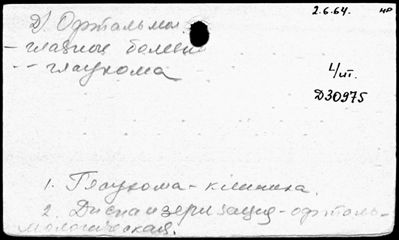 2.6.64. нр
Д) Офтальмол
- глазной болезн
- - глаукома
4/ит.
Д30975
1. Глаукома - клиника.
2. Диспансеризация - офталь-
мологическая.